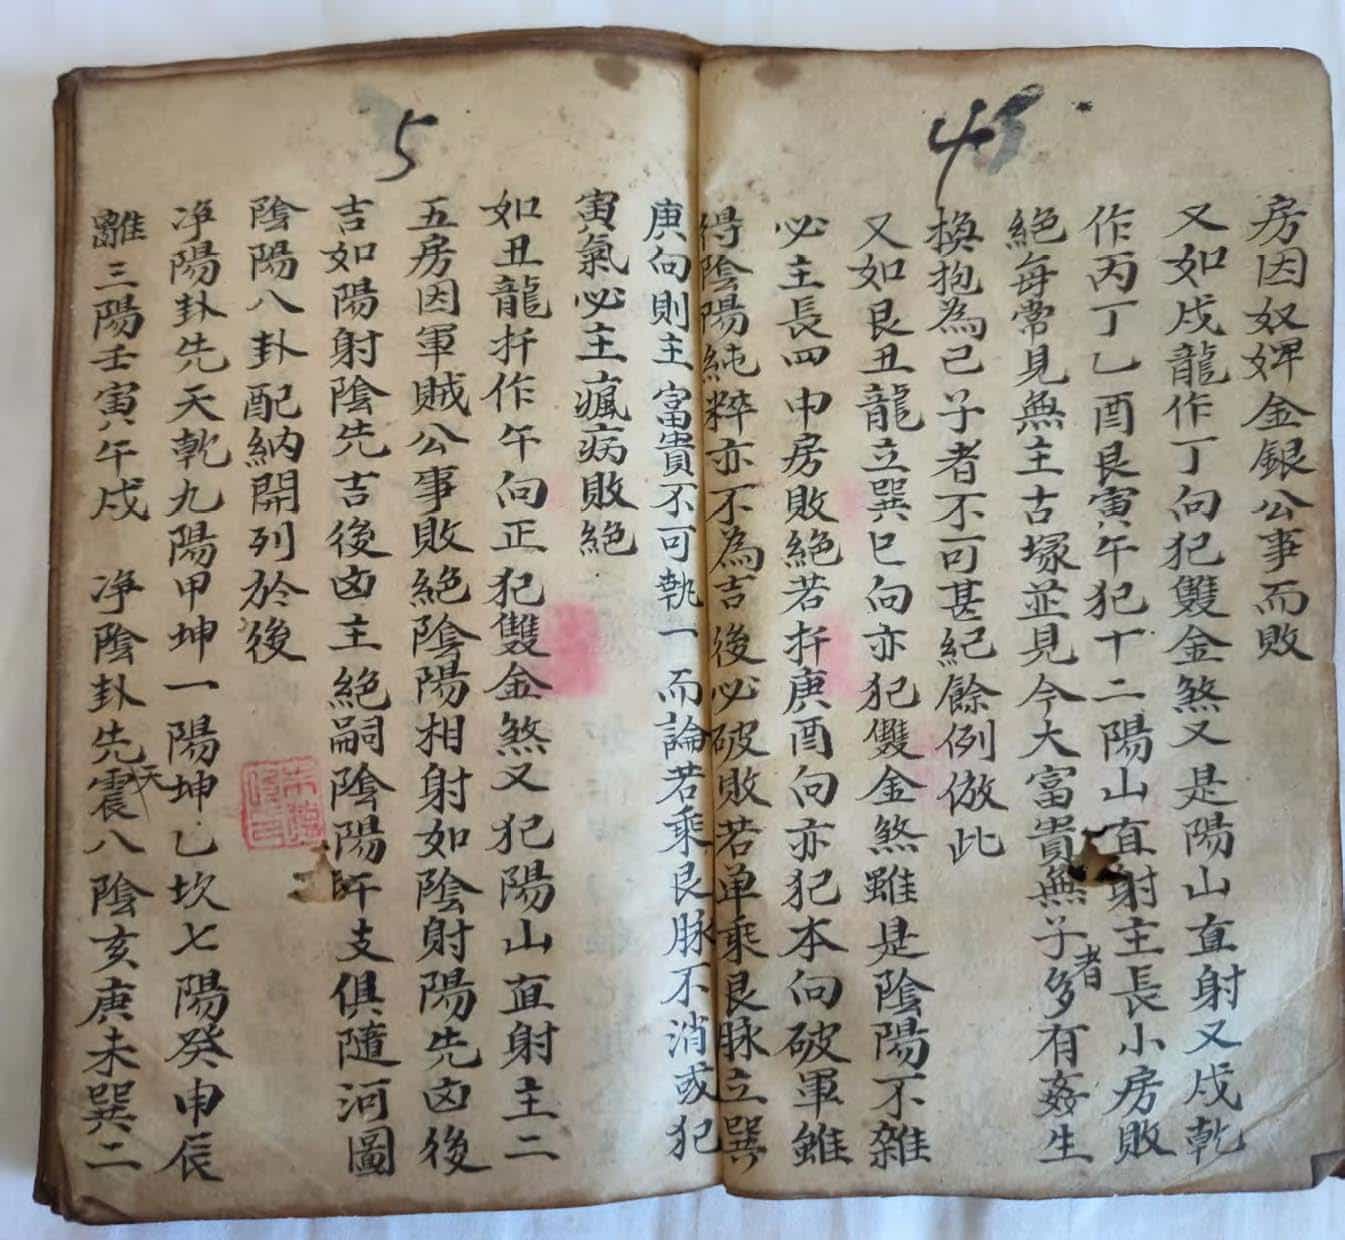 4
房因奴婢金銀公事而敗
又如戌龍作丁向犯雙金煞又是陽山直射又戌乾
作丙丁乙酉艮寅午犯十二陽山直射主長小房敗
絕每常見無主古塚並見今大富貴無子者多有姦生
換抱為己子者不可甚紀餘例倣此
又如艮丑龍立巽巳向亦犯雙金煞雖是陰陽不雜
必主長四中房敗絕若扦庚酉向亦犯本向破軍雖
得陰陽純粹亦不為吉後必破敗若单乘艮脉立巽
庚向則主富貴不可執一而論若乘艮脉不消或犯
5
寅氣必主瘋病敗絕
如丑龍扦作午向正犯雙金煞又犯陽山直射主二
五房因軍賊公事敗絕陰陽相射如陰射陽先凶後
吉如陽射陰先吉後凶主絕嗣陰陽阡支俱隨河圖
陰陽八卦配納開列於後
净陽卦先天乾九陽甲坤一陽坤乙坎七陽癸申辰
離三陽壬寅午戌 净陰卦先天震八陰亥庚未巽二